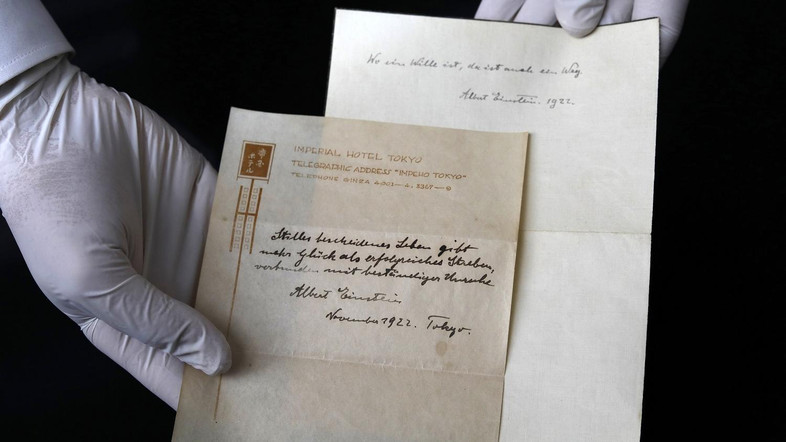 Wo ein Wille ist, da ist auch ein Weg.
Albert Einstein. 1922.
IMPERIAL HOTEL TOKYO
TELEGRAPHIC ADDRESS "IMPEHO TOKYO"
TELEPHONE GINZA
Stilles bescheidenes Leben gibt
mehr Glück als erfolgreiches Streben,
verbunden mit beständiger Unruhe
Albert Einstein
November 1922. Tokyo.